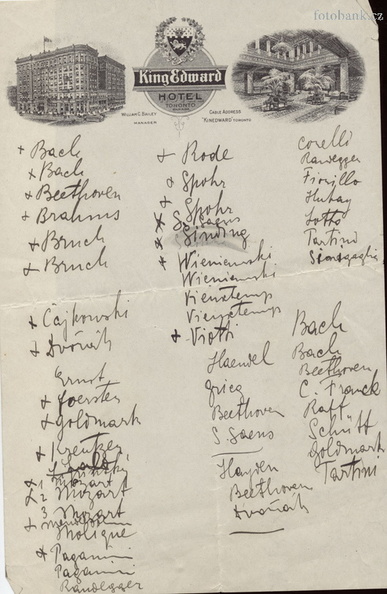 fotobank.cz
King Edward
HOTEL
TORONTO
WILLIAM C. BAILEY
MANAGER
CABLE ADDRESS
"KINEDWARD" TORONTO
+ Bach
+ Bach
+ Beethoven
+ Brahms
+ Bruch
+ Bruch
+ Čajkowski
+ Dvořák
Ernst
+ Foerster
+ Goldmark
+ 1 Mozart
+ 2 Mozart
3 Mozart
Molique
+ Paganini
Paganini
Randegger
+ Rode
+ Spohr
+ Spohr
S. Saens
Sinding
Wieniawski
Wieniawski
Vieuxtemp
Vieuxtemp
+ Viotti
Haendel
Grieg
Beethoven
S. Saens
Haydn
Beethoven
Dvořák
Corelli
Randegger
Fiorillo
Hubay
Lotto
Tartini
Bach
Bach
Beethoven
C. Franck
Raff
Schütt
Goldmark
Tartini